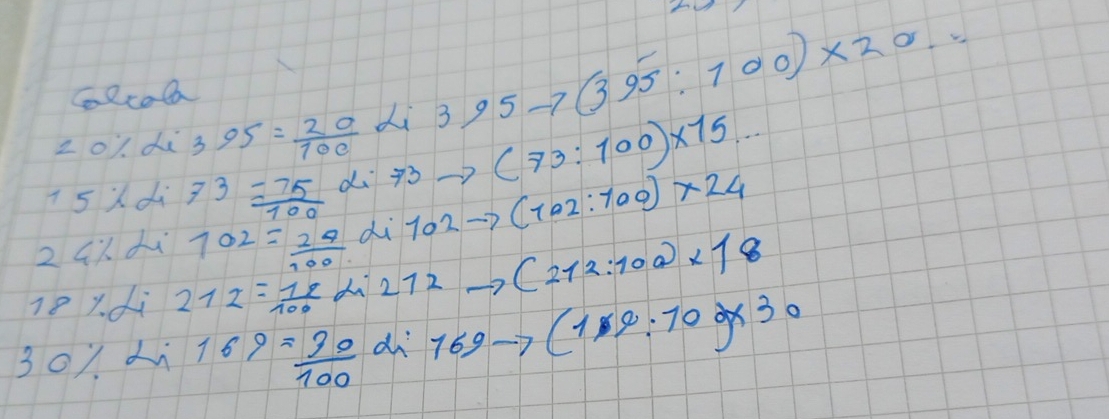 Calcola
20% di 395 = 20/100 di 395 → (395:100)×20...
15% di 73 = 15/100 di 73 → (73:100)×15...
24% di 102 = 24/100 di 102 → (102:100)×24
18% di 212 = 18/100 di 212 → (212:100)×18
30% di 169 = 30/100 di 169 → (169:100)×30